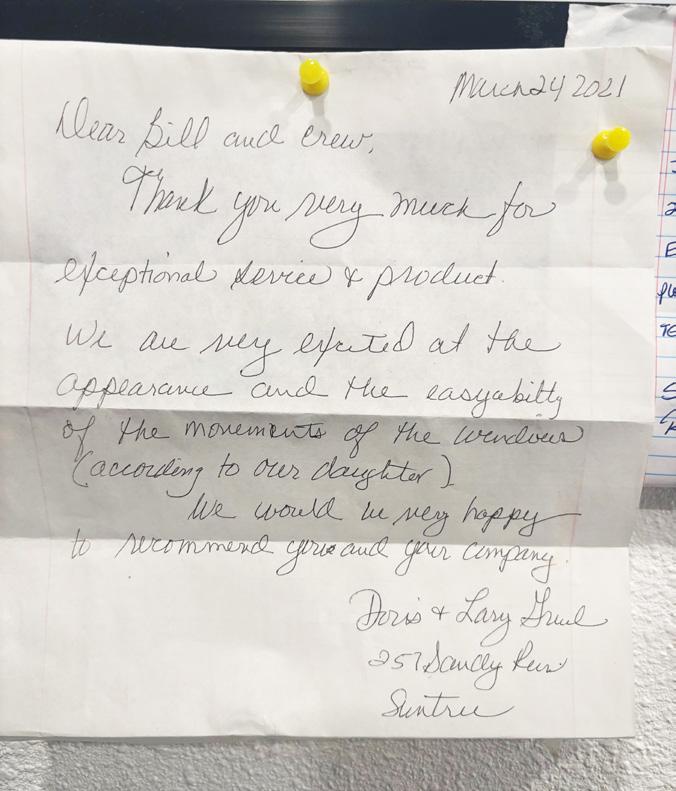 March 24 2021
Dear Bill and crew,
Thank you very much for
exceptional service & product.
We are very excited at the
appearance and the easyabilty
of the movements of the windows
(according to our daughter)
We would be very happy
to recommend you and your company.
Doris & Lary
257 Sandy Run
Suntree
2
E
TE
S